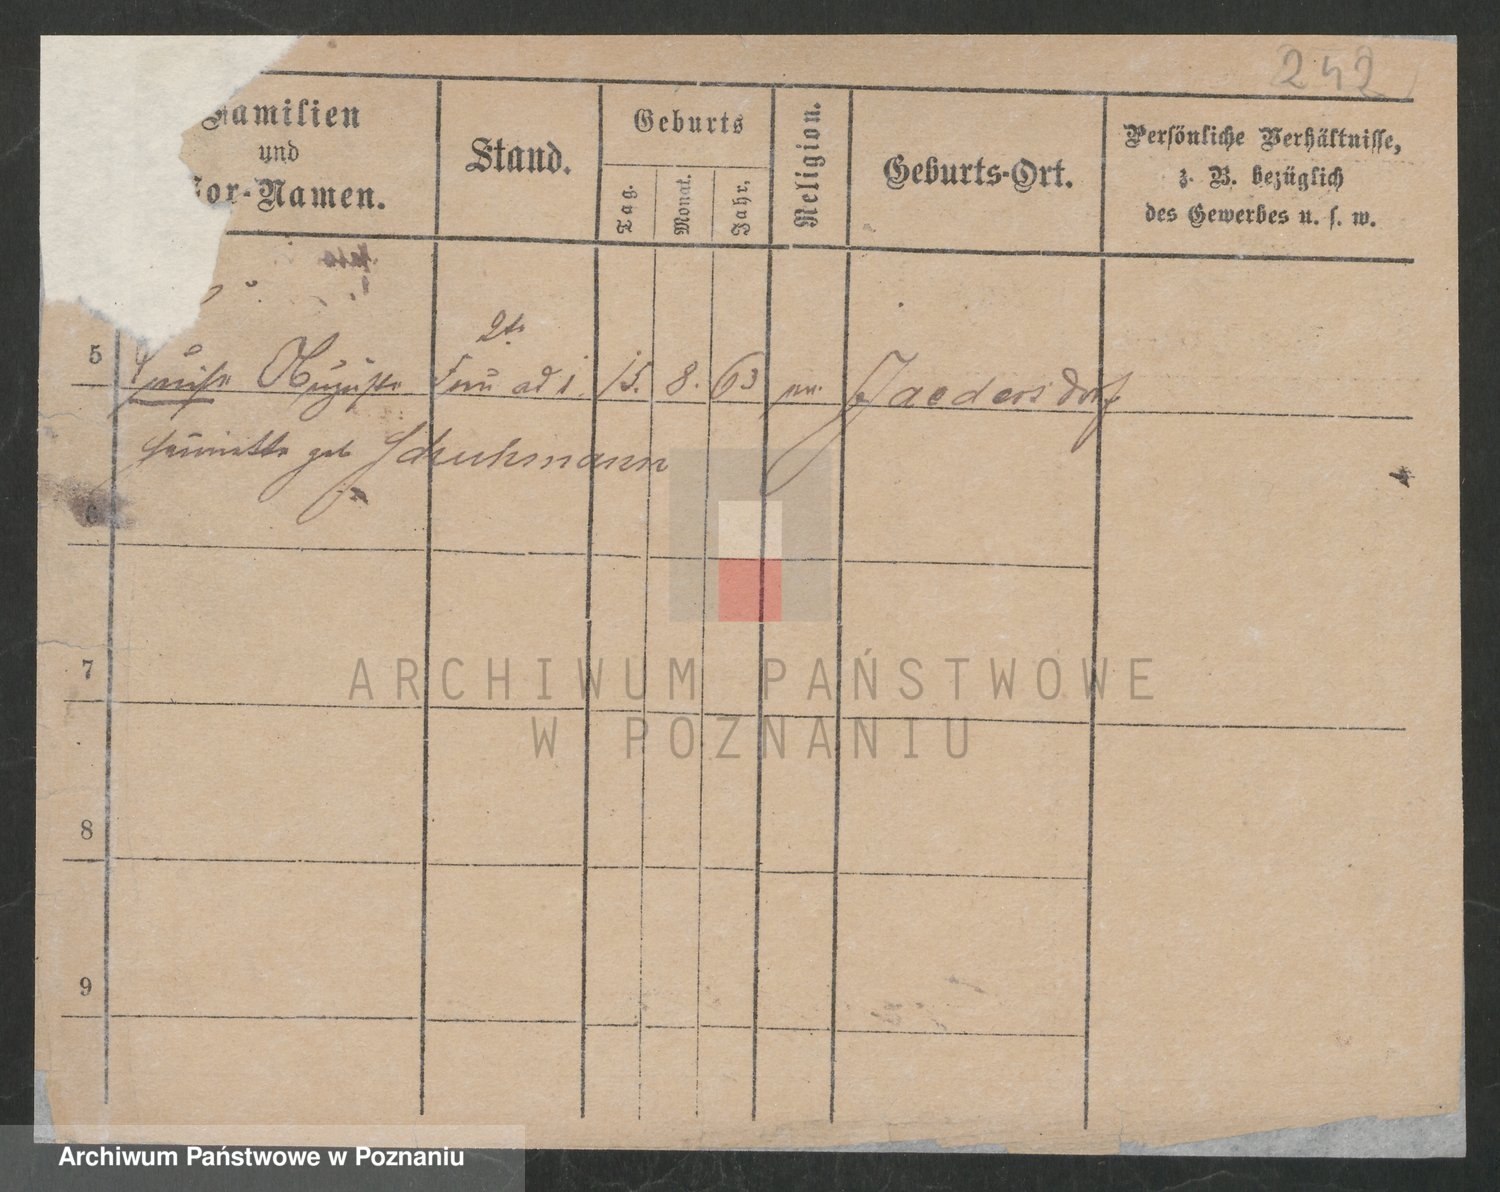 242
Familien
und
Vor-Namen.
Stand.
Geburts
Tag.
Monat.
Jahr.
Religion.
Geburts-Ort.
Persönliche Verhältnisse,
z. B. bezüglich
des Gewerbes u. s. w.
2te
5 Luise Auguste Frau ad 1. 15. 8. 63 Jaedersdorf
geb Schuhmann
6
7
8
9
ARCHIWUM PAŃSTWOWE
W POZNANIU
Archiwum Państwowe w Poznaniu